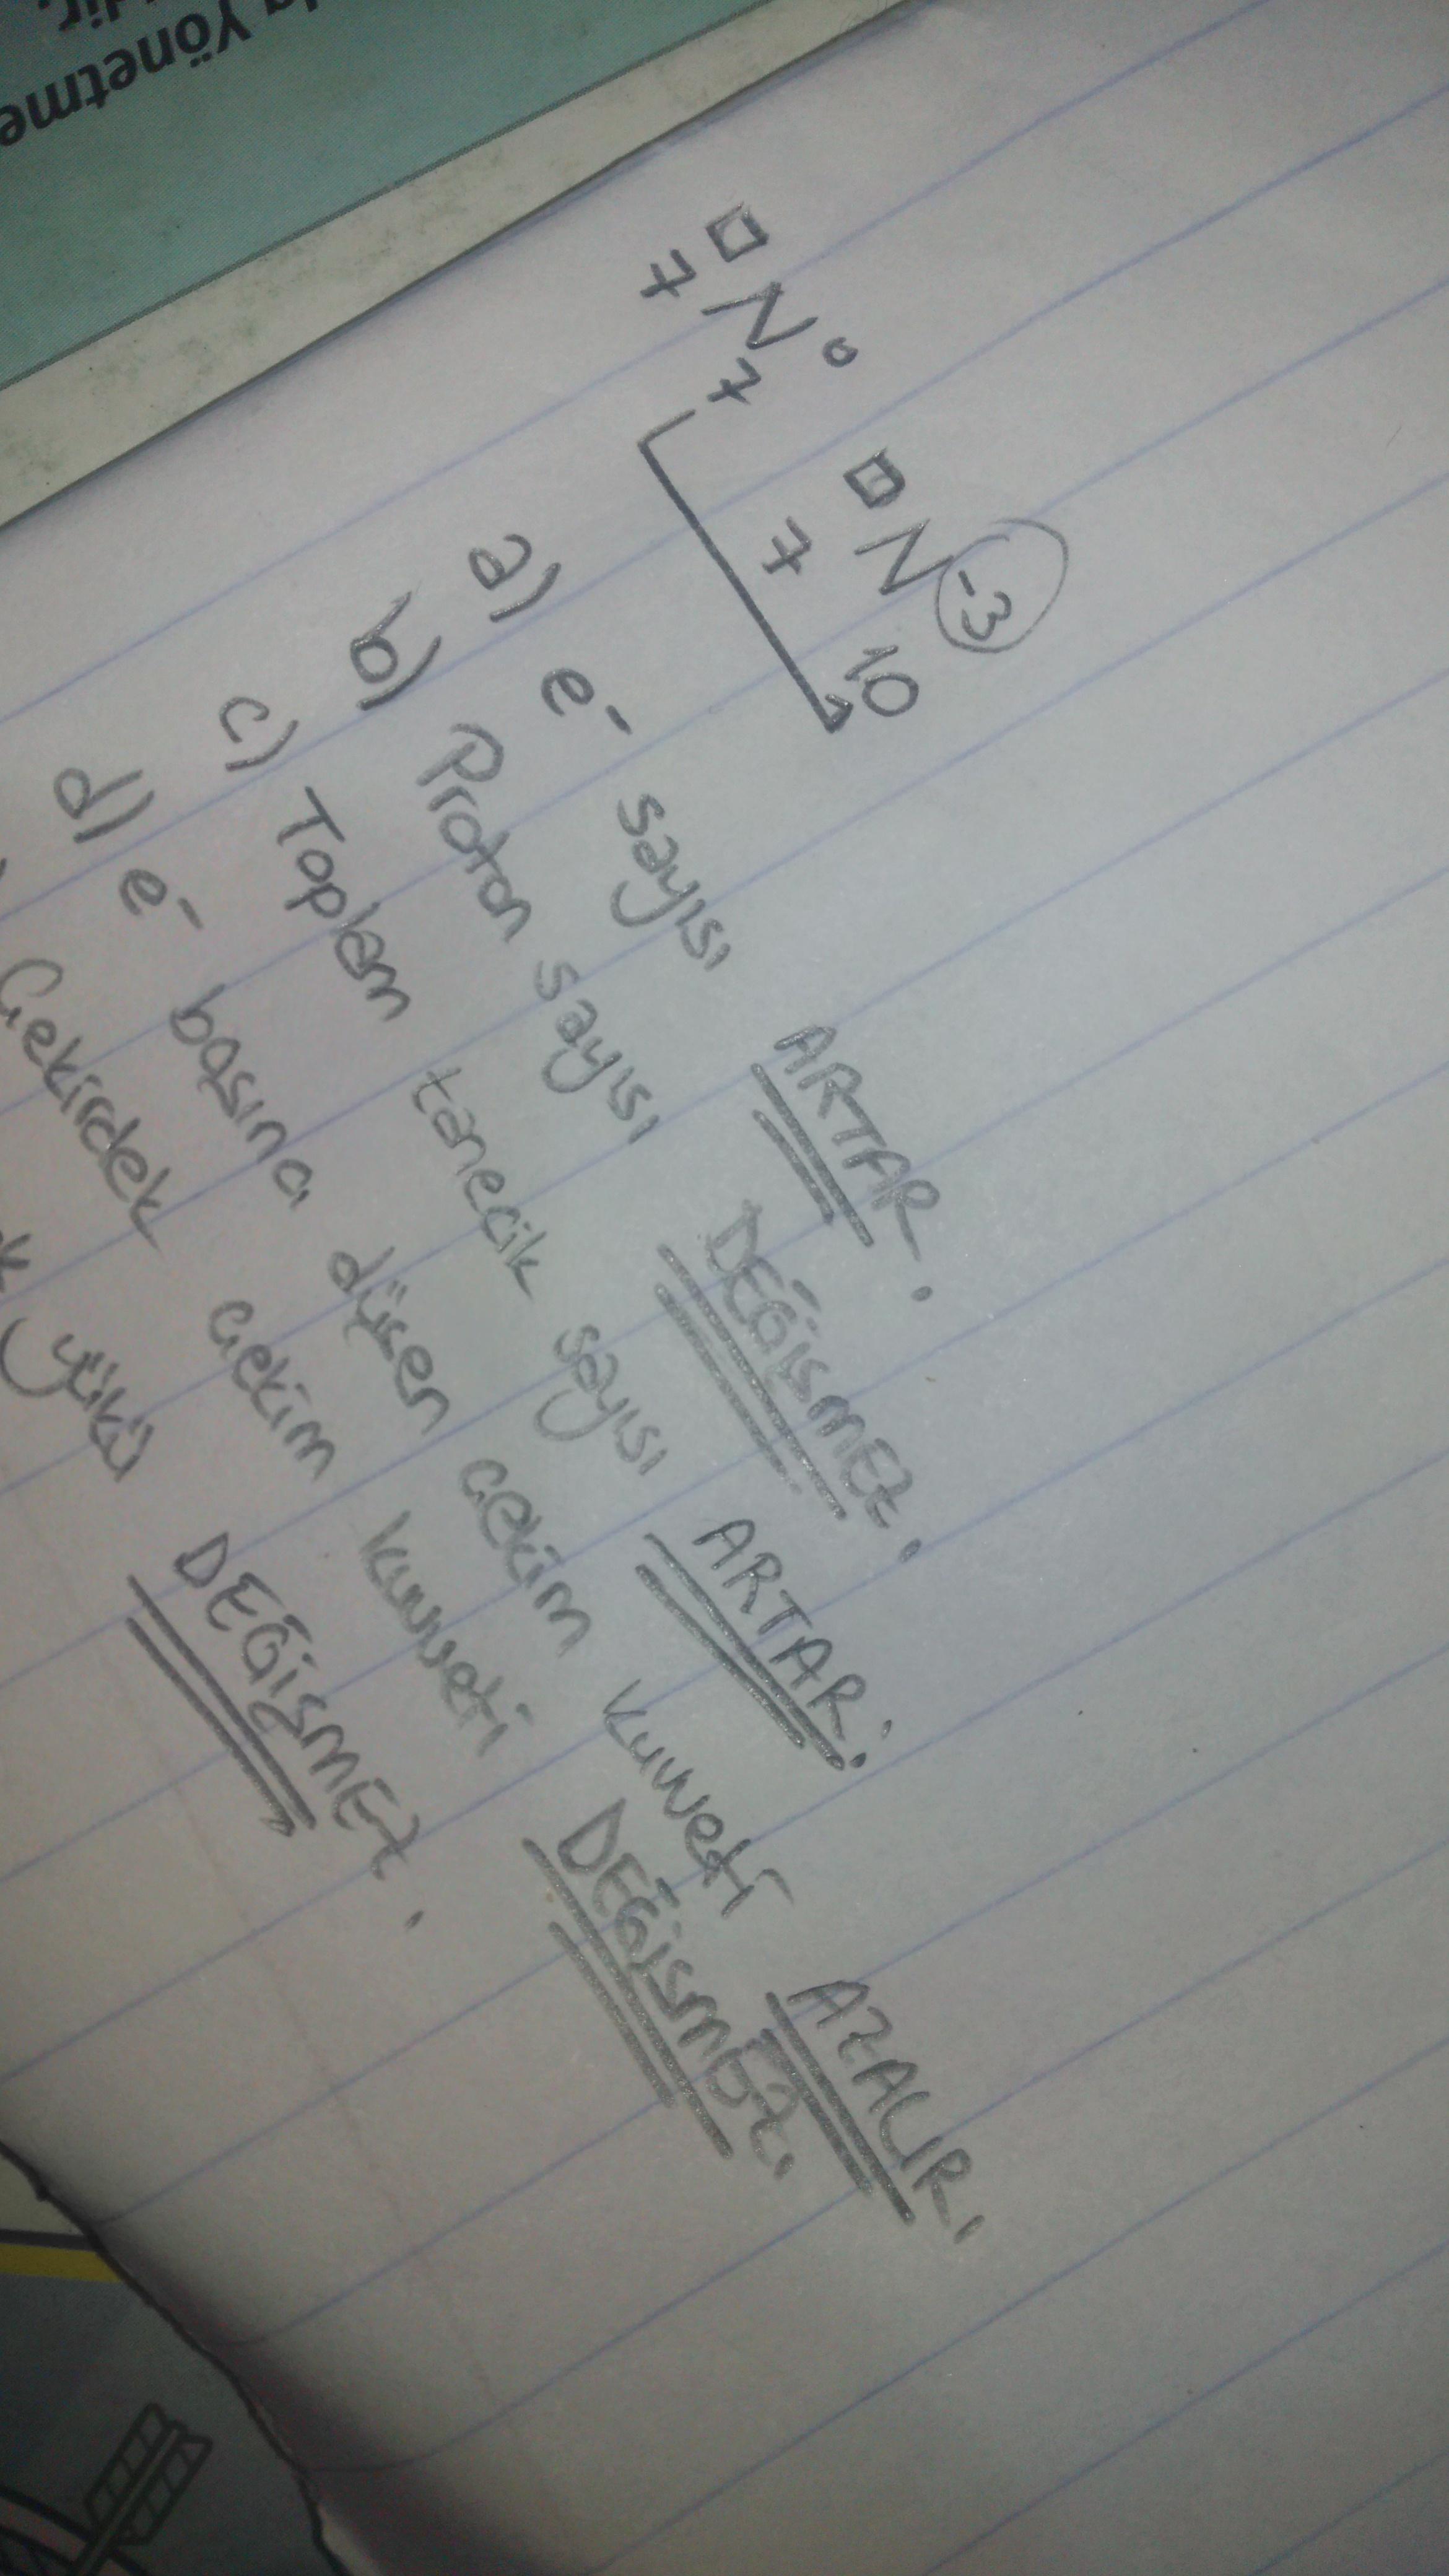 □ N 0
7 7
□ N -3
7 10
a) e- sayısı ARTAR.
b) Proton sayısı DEĞİŞMEZ.
c) Toplam tanecik sayısı ARTAR.
d) e- başına düşen çekim kuvveti AZALIR.
Çekirdek çekim kuvveti DEĞİŞMEZ.
yükü DEĞİŞMEZ.
Yönetme